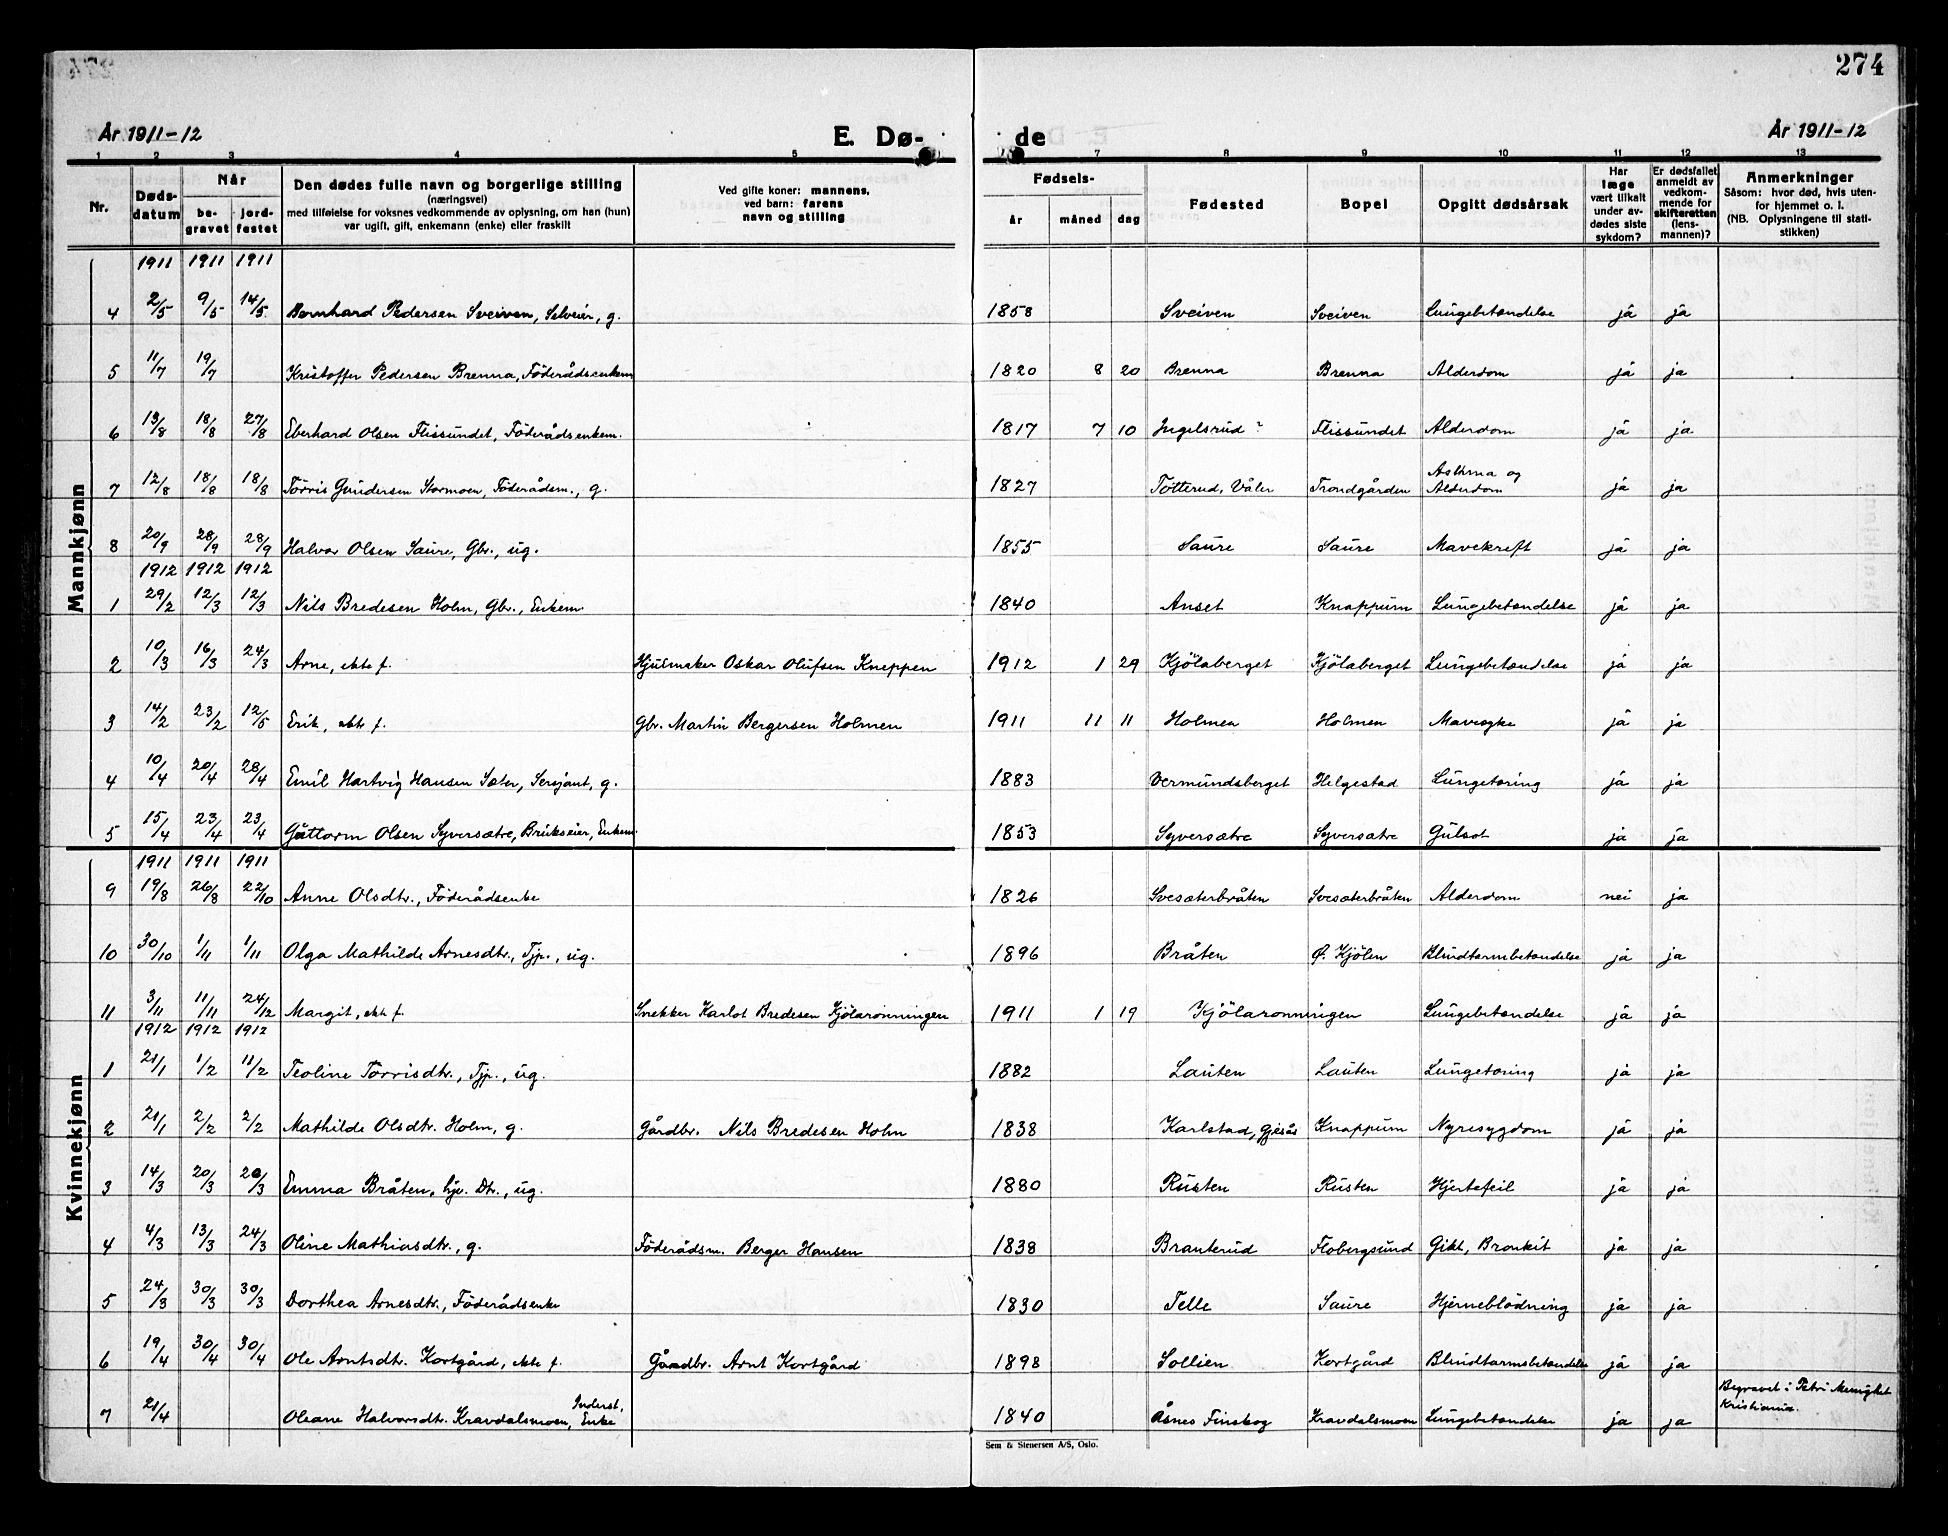 274
År 1911-12
E. Dø-
de
År 1911-12
1 2 3 4 5 7 8 9 10 11 12 13
Nr.
Døds-
datum
Når
be-
gravet
jord-
festet
Den dødes fulle navn og borgerlige stilling
(næringsvei)
med tilføielse for voksnes vedkommende av oplysning, om han (hun)
var ugift, gift, enkemann (enke) eller fraskilt
Ved gifte koner: mannens,
ved barn: farens
navn og stilling
Fødsels-
år måned dag
Fødested
Bopel
Opgitt dødsårsak
Har
læge
vært tilkalt
under av-
dødes siste
sykdom?
Er dødsfallet
anmeldt av
vedkom-
mende for
skifteretten
(lens-
mannen)?
Anmerkninger
Såsom: hvor død, hvis uten-
for hjemmet o. l.
(NB. Oplysningene til stati-
stikken)
Mannkjønn
1911 1911 1911
4 2/5 9/5 14/5 Bernhard Pedersen Sveiven, Selveier, g. 1858 Sveiven Sveiven Lungebetændelse ja ja
5 11/7 19/7 Kristoffer Pedersen Brenna, Föderådsenkem 1820 8 20 Brenna Brenna Alderdom ja ja
6 13/8 18/8 27/8 Eberhard Olsen Flissundet, Föderådsenkem. 1817 7 10 Ingelsrud ? Flissundet Alderdom ja ja
7 12/8 18/8 18/8 Törris Gundersen Stormoen, Föderådsm., g. 1827 Totterud, Våler Trondgården Asthma og
Alderdom ja ja
8 20/9 28/9 28/9 Halvor Olsen Saure, Gbr., ug. 1855 Saure Saure Mavekreft ja ja
1912 1912 1912
1 29/2 12/3 12/3 Nils Bredesen Holm, Gbr., Enkem. 1840 Anset Knappum Lungebetændelse ja ja
2 10/3 16/3 24/3 Arne, ekte f. Hjulmaker Oskar Olufsen Kneppen 1912 1 29 Kjölaberget Kjölaberget Lungebetændelse ja ja
3 14/2 23/2 12/5 Erik, ekte f. Gbr. Martin Bergersen Holmen 1911 11 11 Holmen Holmen Mavesyke ja ja
4 10/4 20/4 28/4 Emil Hartvig Hansen Sæter, Serjant, g. 1883 Vermundsberget Helgestad Lungetæring ja ja
5 15/4 23/4 23/4 Guttorm Olsen Syversætre, Brukseier, Enkem. 1853 Syversætre Syversætre Gulsot ja ja
Kvinnekjønn
1911 1911 1911
9 19/8 26/8 22/10 Anne Olsdtr., Föderådsenke 1826 Svesæterbråten Svesæterbråten Alderdom nei ja
10 30/10 1/11 1/11 Olga Mathilde Arnesdtr., Tjp., ug. 1896 Bråten Ø. Kjölen Blindtarmbetændelse ja ja
11 3/11 11/11 24/12 Margit, ekte f. Snekker Karlot Bredesen Kjölarønningen 1911 1 19 Kjölarønningen Lungebetændelse ja ja
1912 1912 1912
1 21/1 1/2 11/2 Teoline Törrisdtr., Tjp., ug. 1882 Lauten Lauten Lungetæring ja ja
2 21/1 2/2 2/2 Mathilde Olsdtr. Holm, g. Gårdbr. Nils Bredesen Holm 1838 Karlstad, Gjesås Knappum Nyresygdom ja ja
3 14/3 20/3 20/3 Emma Bråten, hjv. Dtr., ug. 1880 Rusten Rusten Hjertefeil ja ja
4 4/3 13/3 24/3 Oline Mathiasdtr., g. Föderådsm. Berger Hansen 1838 Branterud Flobergsund Gikt, Bronkit ja ja
5 24/3 30/3 30/3 Dorthea Arnesdtr., Föderådsenke 1830 Telle Saure Hjerneblödning ja ja
6 19/4 30/4 30/4 Ole Arntsdtr. Kortgård, ekte f. Gårdbr. Arnt Kortgård 1898 Sollien Kortgård Blindtarmsbetændelse ja ja
7 21/4 Oleane Halvorsdtr. Kravdalsmoen, Inderst,
Enke 1840 Åsnes Finskog Kravdalsmoen Lungebetændelse ja ja Begravet i Petri Menighet
Kristiania.
Sem & Stenersen A/S, Oslo.